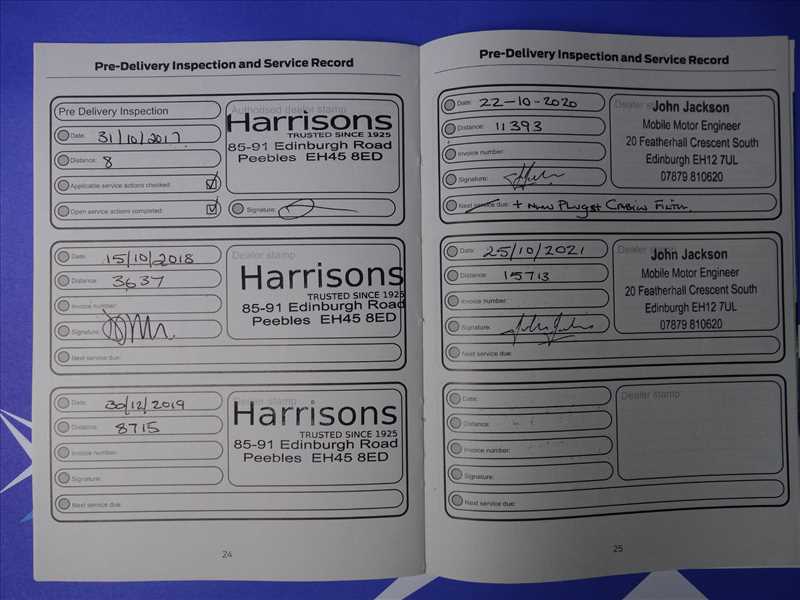 Pre-Delivery Inspection and Service Record
Pre Delivery Inspection
Authorised dealer stamp
Date: 31/10/2017.
Distance: 8
Applicable service actions checked:
Open service actions completed:
Harrisons
TRUSTED SINCE 1925
85-91 Edinburgh Road
Peebles EH45 8ED
Signature:
Date: 15/10/2018
Distance: 3637
Invoice number:
Signature:
Next service due:
Dealer stamp
Harrisons
TRUSTED SINCE 1925
85-91 Edinburgh Road
Peebles EH45 8ED
Date: 30/12/2019
Distance: 8715
Invoice number:
Signature:
Next service due:
Dealer stamp
Harrisons
TRUSTED SINCE 1925
85-91 Edinburgh Road
Peebles EH45 8ED
24
Pre-Delivery Inspection and Service Record
Date: 22-10-2020
Distance: 11393
Invoice number:
Signature:
Next service due: + New Plugs + Cabin Filter.
Dealer stamp
John Jackson
Mobile Motor Engineer
20 Featherhall Crescent South
Edinburgh EH12 7UL
07879 810620
Date: 25/10/2021
Distance: 15713
Invoice number:
Signature:
Next service due:
Dealer stamp
John Jackson
Mobile Motor Engineer
20 Featherhall Crescent South
Edinburgh EH12 7UL
07879 810620
Date:
Distance:
Invoice number:
Signature:
Next service due:
Dealer stamp
25